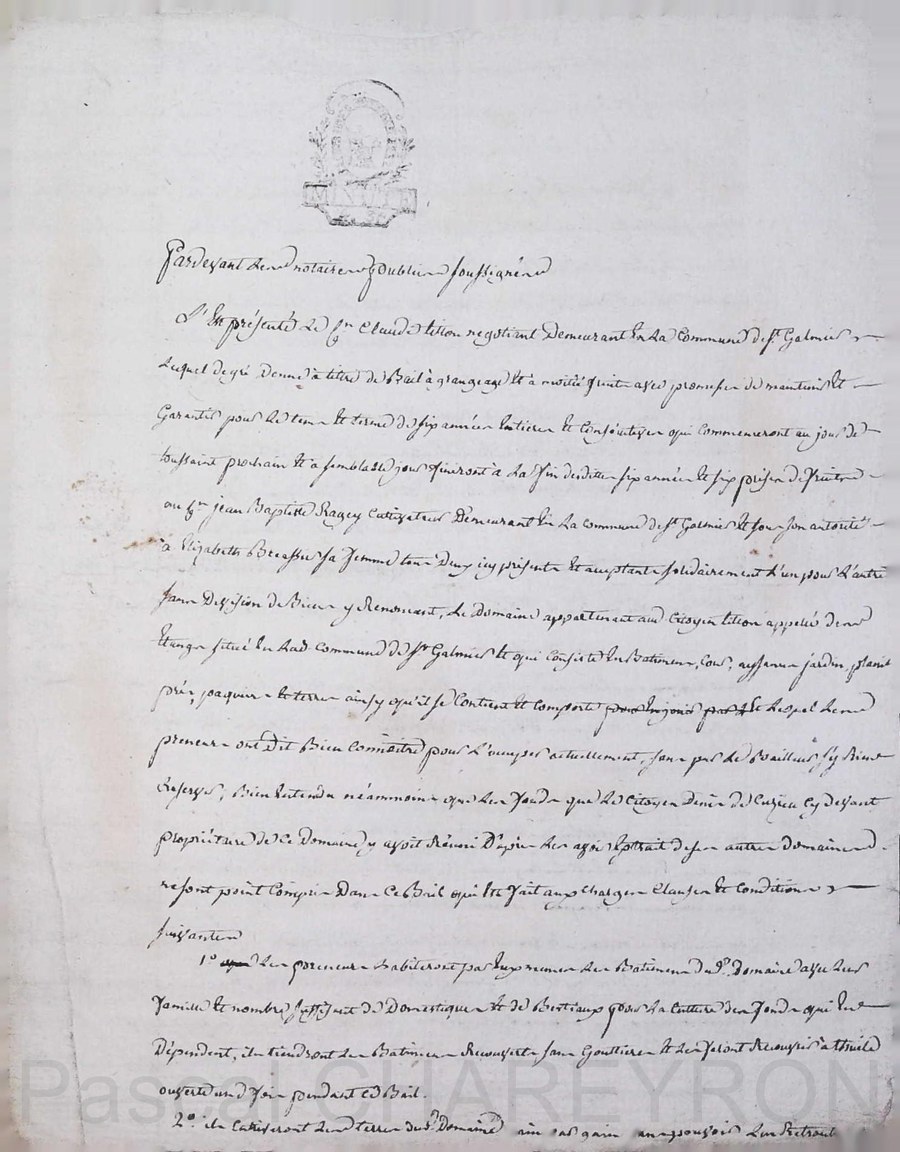 MINUTE
Pardevant Les notaires publics soussignés
S'Est présenté Le Cen Claude Ution negotiant Demeurant En La Commune de St Galmier
Lequel de gré Donne à titre de Bail à grangeage Et à moitié fruits avec promesse de maintenir Et
Garantir pour Le tems Et terme de six années Entieres Et Consécutives qui Commenceront au jour de
toussaint prochain Et à semblable jour finiront à La fin desdittes six années Et six prises de fruits
au Cen jean Baptiste Ragey Cultivateur Demeurant En La commune de St Galmier Et sous son autorité
à Elizabeth sa femme tous Deux icy présents Et acceptants solidairement L'un pour L'autre
sans Division de Biens y Renoncant, Le Domaine appartenant au Citoyen Ution appellé des
Etangs situé En Lad. Commune de St Galmier Et qui Consiste En Batiments, Cour, aysances jardin,
prés, paquiers Et terres ainsy qu'il se Contient Et Comporte Et Lequel Les
preneurs ont Dit Bien Connoitre pour L'occuper actuellement, sans par Le Bailleur s'y Rien
Reserver; Bien Entendu néammoins que Les fonds que Le Citoyen Denis de Cuzieu cy devant
propriétaire de Ce Domaine y avoit Réuni D'après Les avoir Extrait de ses autres Domaines
ne sont point Compris Dans Ce Bail qui Est fait aux charges Clauses Et Conditions
suivantes
1° Les preneurs habiteront par Eux mêmes Les Batiments dud. Domaine avec Leur
famille Et nombre suffisant de Domestiques Et de Bestiaux pour La Culture des fonds qui En
Dépendent, ils tiendront Les Batiments Recouverts sans Gouttieres Et Les feront Recouvrir à thuile
ouverte une fois pendant Ce Bail.
2° ils Cultiveront Les terres dud. Domaine
Pascal CHAREYRON